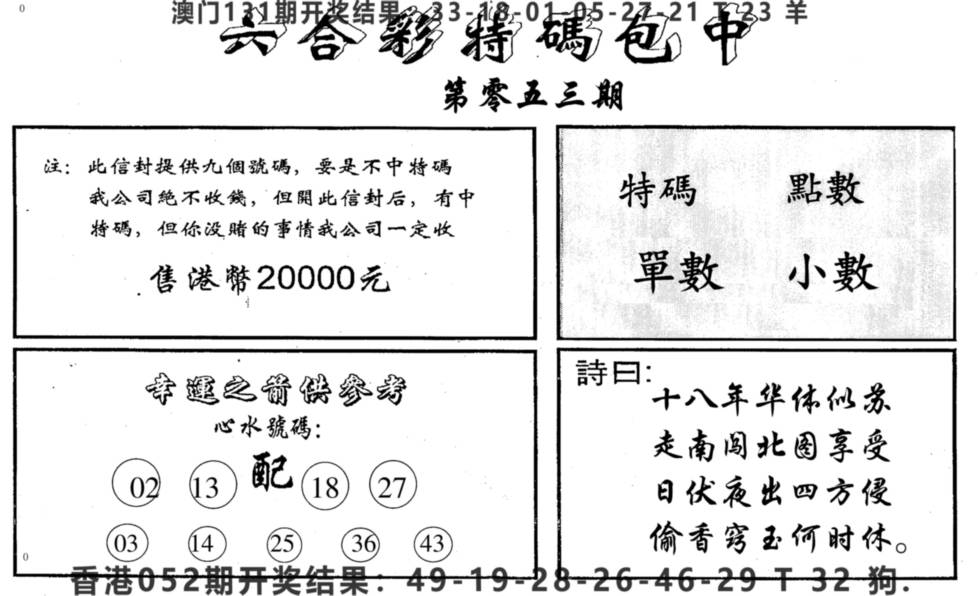 澳门131期开奖结果：33-18-01-05-27-21 T 23 羊
六合彩特碼包中
第零五三期
注：此信封提供九個號碼，要是不中特碼
我公司絶不收錢，但開此信封后，有中
特碼，但你没賭的事情我公司一定收
售港幣20000元
特碼 點數
單數 小數
幸運之前供參考
心水號碼：
02 13 配 18 27
03 14 25 36 43
詩曰:
十八年华休似苏
走南闯北图享受
日伏夜出四方侵
偷香窍玉何时休。
香港052期开奖结果：49-19-28-26-46-29 T 32 狗.